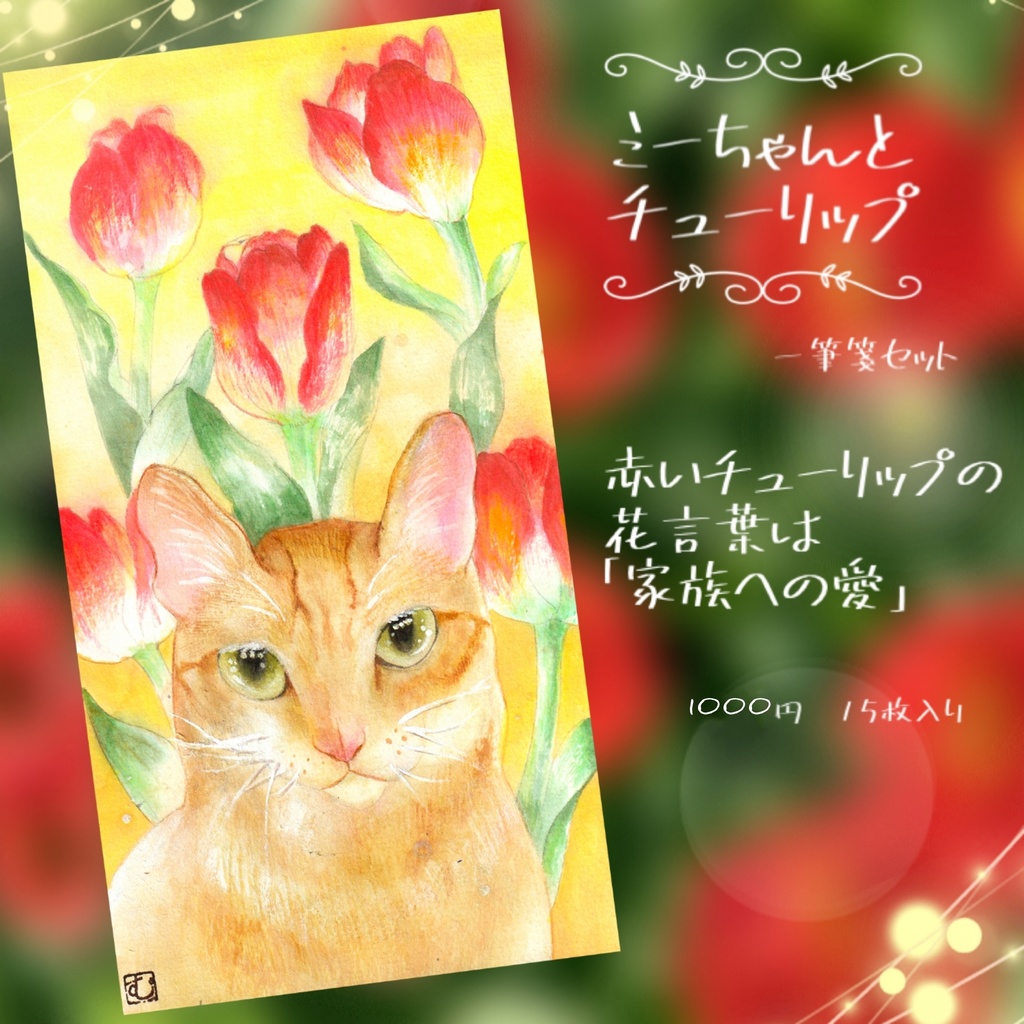 みーちゃんと
チューリップ
一筆箋セット
赤いチューリップの
花言葉は
「家族への愛」
1000円　15枚入り
む